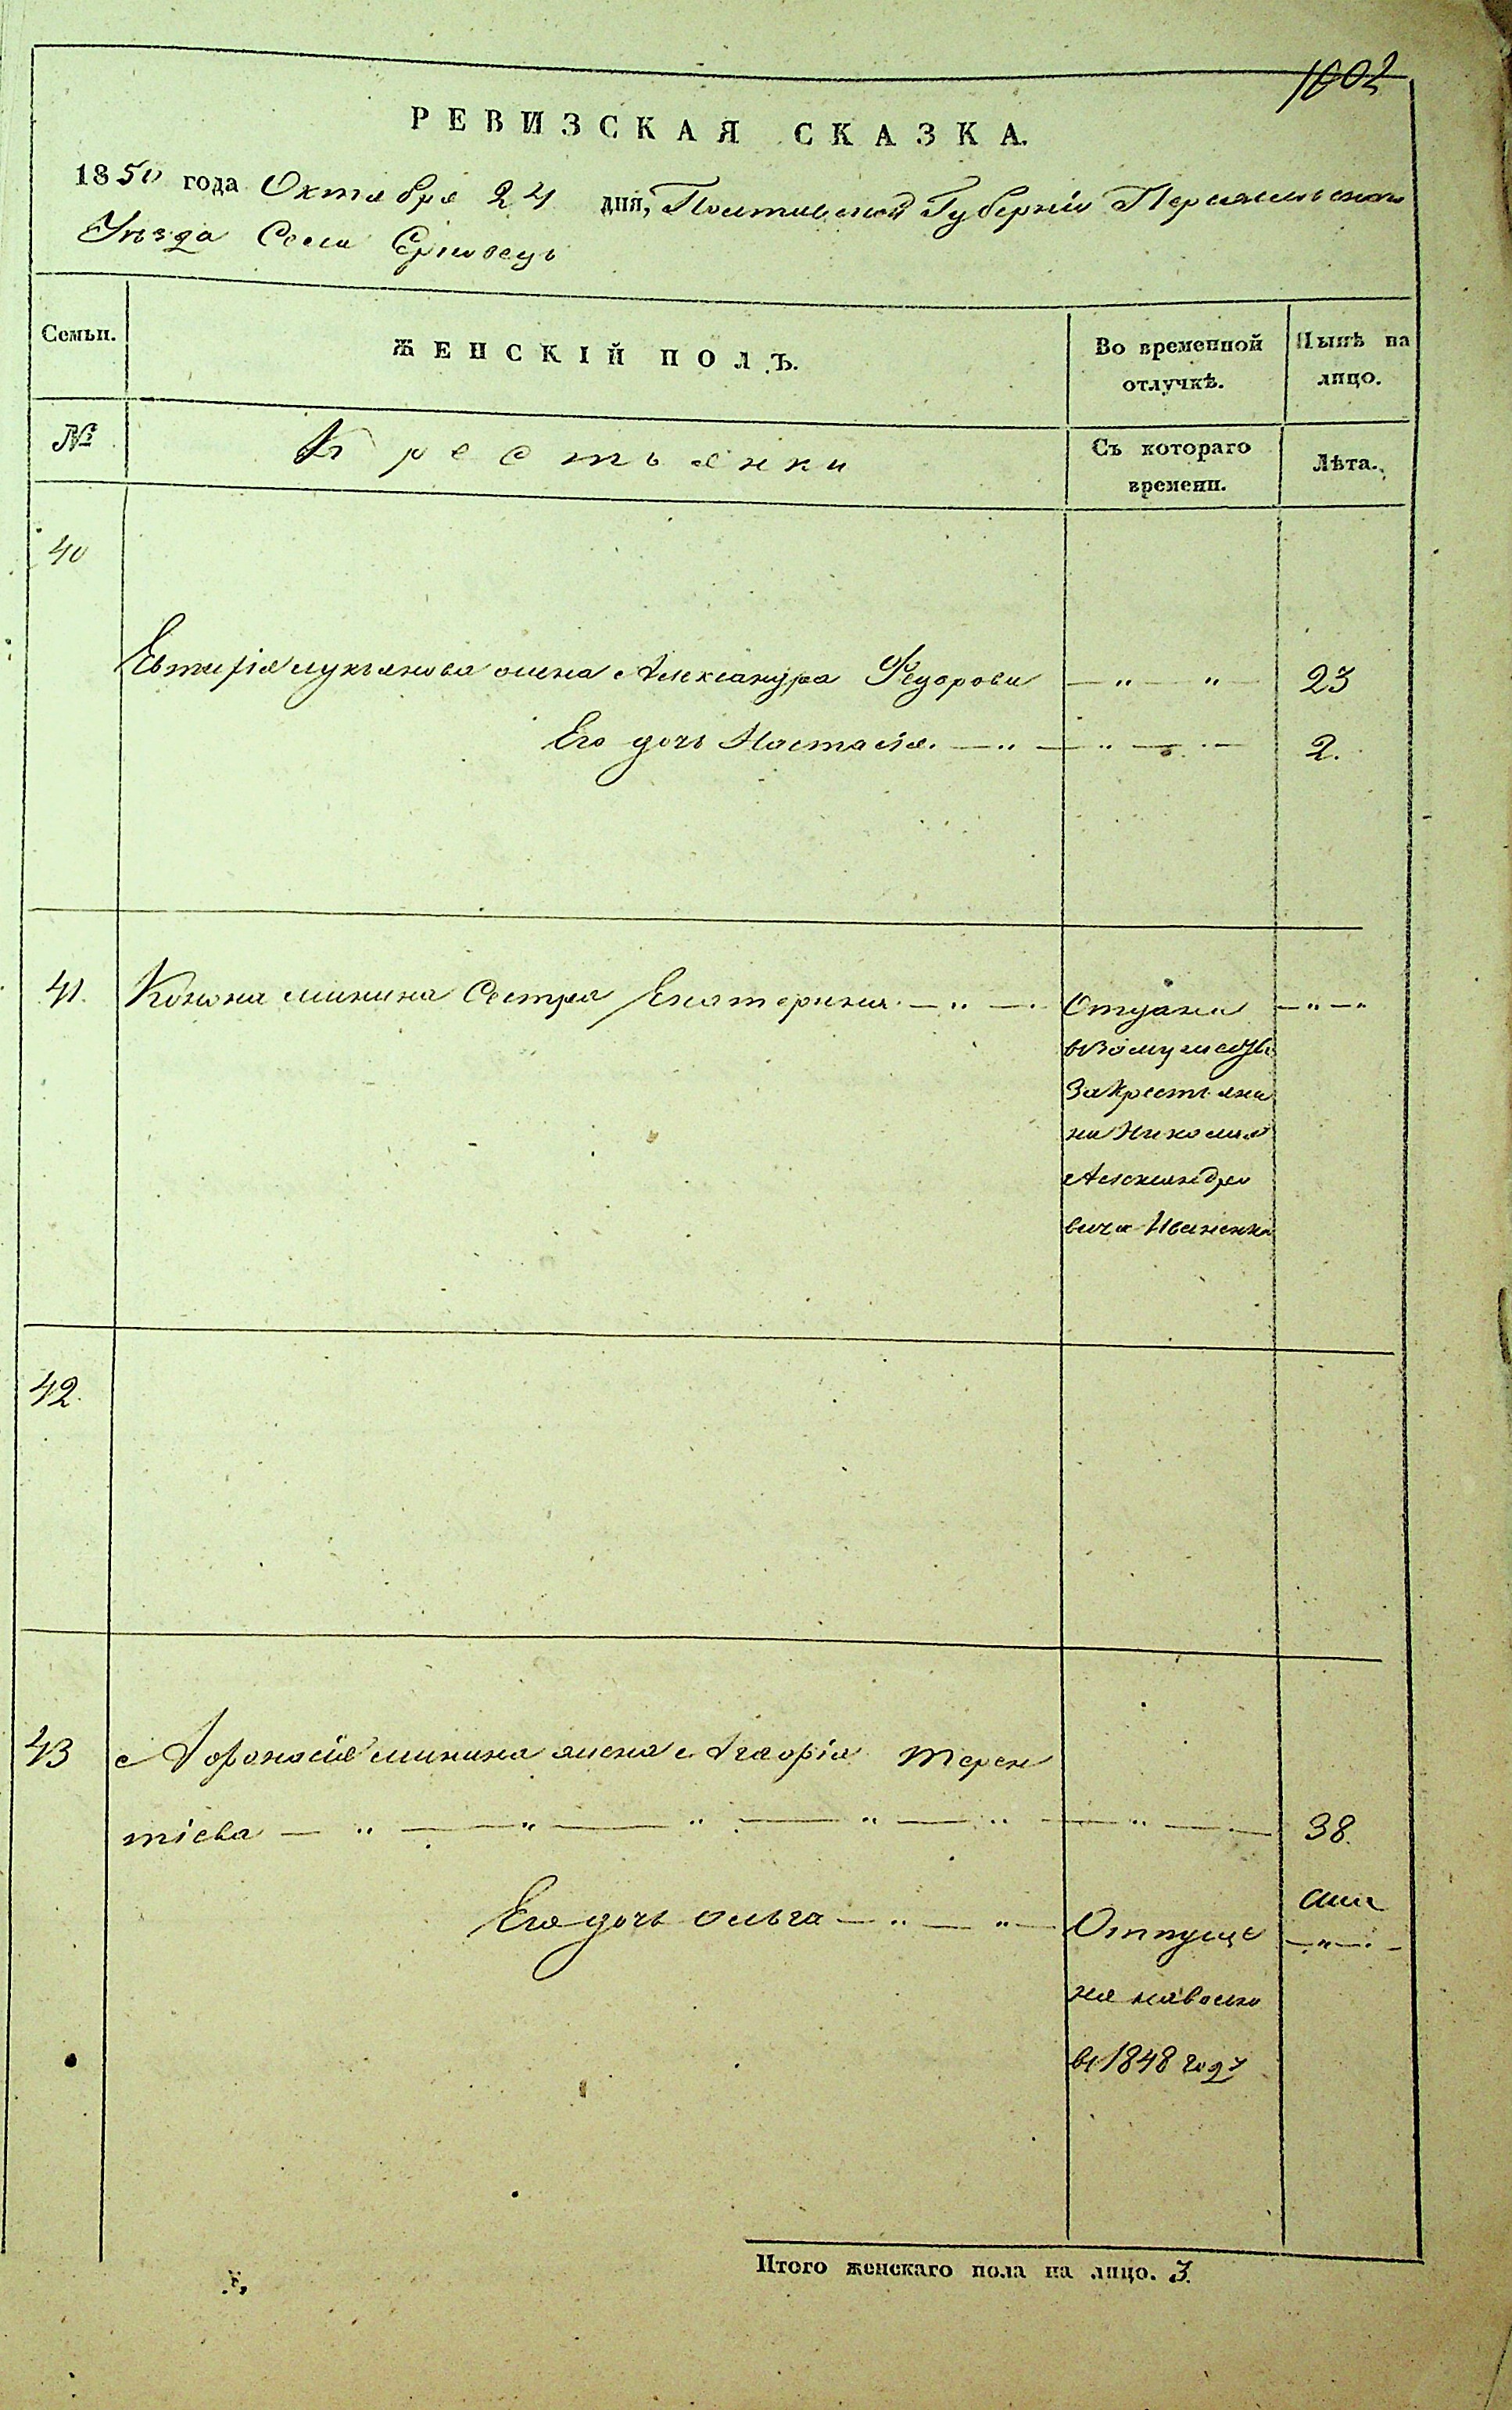 1002
РЕВИЗСКАЯ СКАЗКА.
1850 года Октября 24 дня, Полтавской Губерніи Переяславскаго
Уѣзда Села
Семьи.
ЖЕНСКІЙ ПОЛЪ.
Во временной
отлучкѣ.
Нынѣ на
лицо.
№
Крестьянки
Съ котораго
времени.
Лѣта.
40
Лукьянова жена Александра Федорова — " — " — 23
Его дочь Настасія. — " — " — 2.
41. Конона Минина Сестра Екатерина — " — Отдана — " — "
в замужество
За Крестьяни
на Николая
Александро
вича Иваненка
42.
43 Афонасія Минина жена Терен
тіева — " — " — " — " — " — " — 38.
Его дочь Ольга — " — " — Отпуще — " —
на на волю
в 1848 году
Итого женскаго пола на лицо. 3.